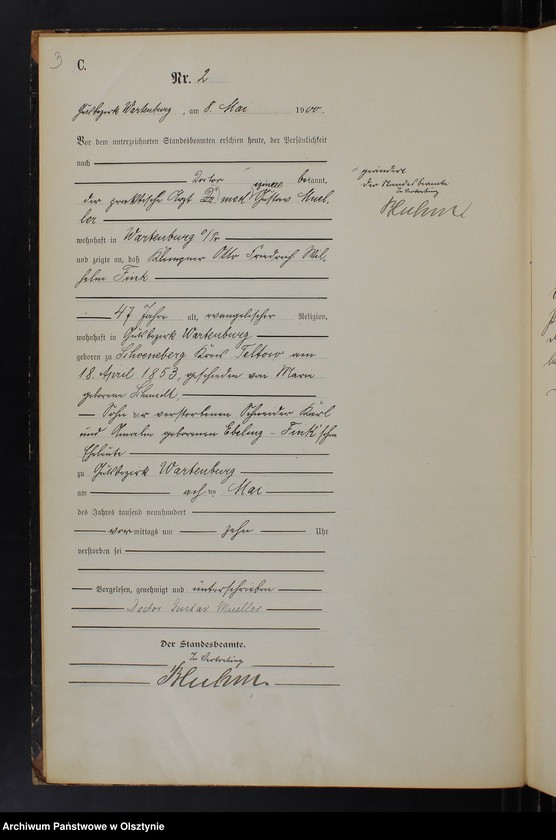 3
C.
Nr. 2
Gutsbezirk Wartenburg, am 8. Mai 1900.
Vor dem unterzeichneten Standesbeamten erschien heute, der Persönlichkeit
nach
Doctor bekannt,
der praktische Arzt Dr med Gustav Muel-
ler
wohnhaft in Wartenburg o/Pr
und zeigte an, daß Klempner Otto Friedrich Wil-
helm Fink
47 Jahre alt, evangelischer Religion,
wohnhaft in Gutsbezirk Wartenburg
geboren zu Schoeneberg Kreis Teltow am
18. April 1853, geschieden von Marie
geborene Schmidt,
Sohn der verstorbenen Schneider Karl
und Amalie geborenen Ebeling - Fink'schen
Eheleute
zu Gutsbezirk Wartenburg
am achten Mai
des Jahres tausend neunhundert
vormittags um zehn Uhr
verstorben sei
Vorgelesen, genehmigt und unterschrieben
Doctor Gustav Mueller
Der Standesbeamte.
In Vertretung
Bluhm.
geändert
der Standesbeamte
In Vertretung
Bluhm
Archiwum Państwowe w Olsztynie